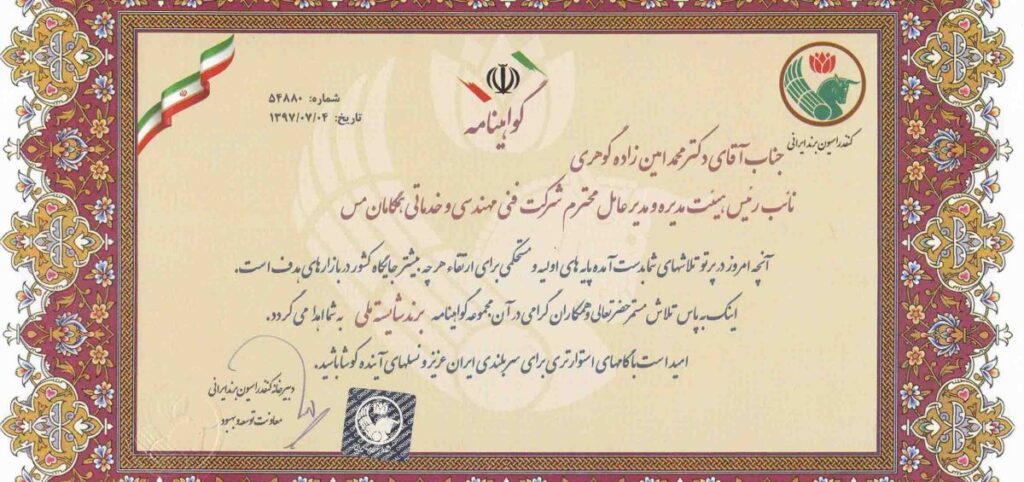 شماره: ۵۴۸۸۰
تاریخ: ۱۳۹۷/۰۷/۰۴
گواهینامه
کنفدراسیون برند ایرانی
جناب آقای دکتر محمد امین زاده گوهری
نائب رئیس هیئت مدیره و مدیر عامل محترم شرکت فنی مهندسی و خدماتی همگامان مس
آنچه امروز در پرتو تلاشهای شما بدست آمده پایه های اولیه و مستحکمی برای ارتقاء هر چه بیشتر جایگاه کشور در بازارهای هدف است.
اینک به پاس تلاش مستمر حضرتعالی و همکاران گرامی در آن مجموعه گواهینامه برند شایسته ملی به شما اهدا می گردد.
امید است با گامهای استوارتری برای سربلندی ایران عزیز و نسلهای آینده کوشا باشید.
دبیرخانه کنفدراسیون برند ایرانی
معاونت توسعه و بهبود